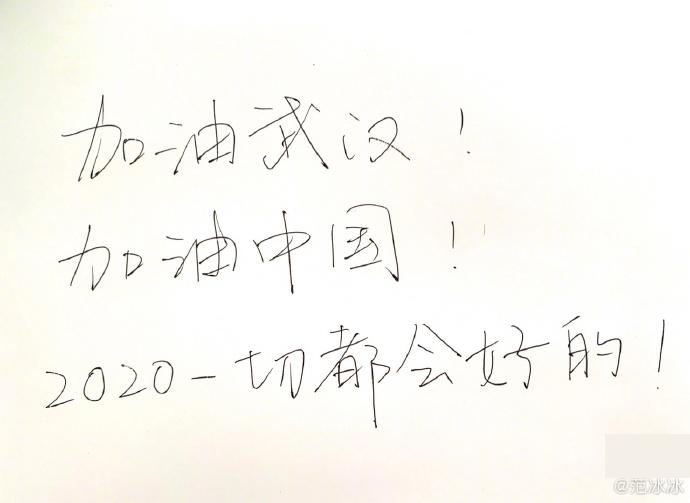 加油武汉！
加油中国！
2020一切都会好的！
@范冰冰